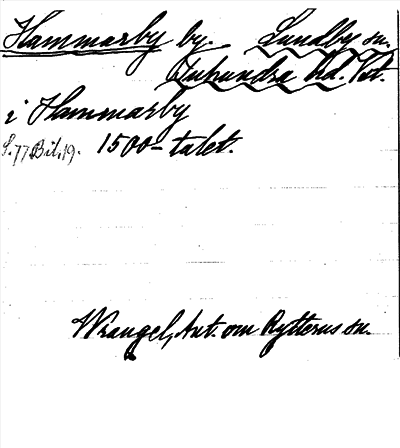 Hammarby by. Lundby sn.
Tuhundra hd. Vstm.
i Hammarby
S. 77 Bil. 19. 1500-talet.
Wrangel, Ant. om Rytterns sn.